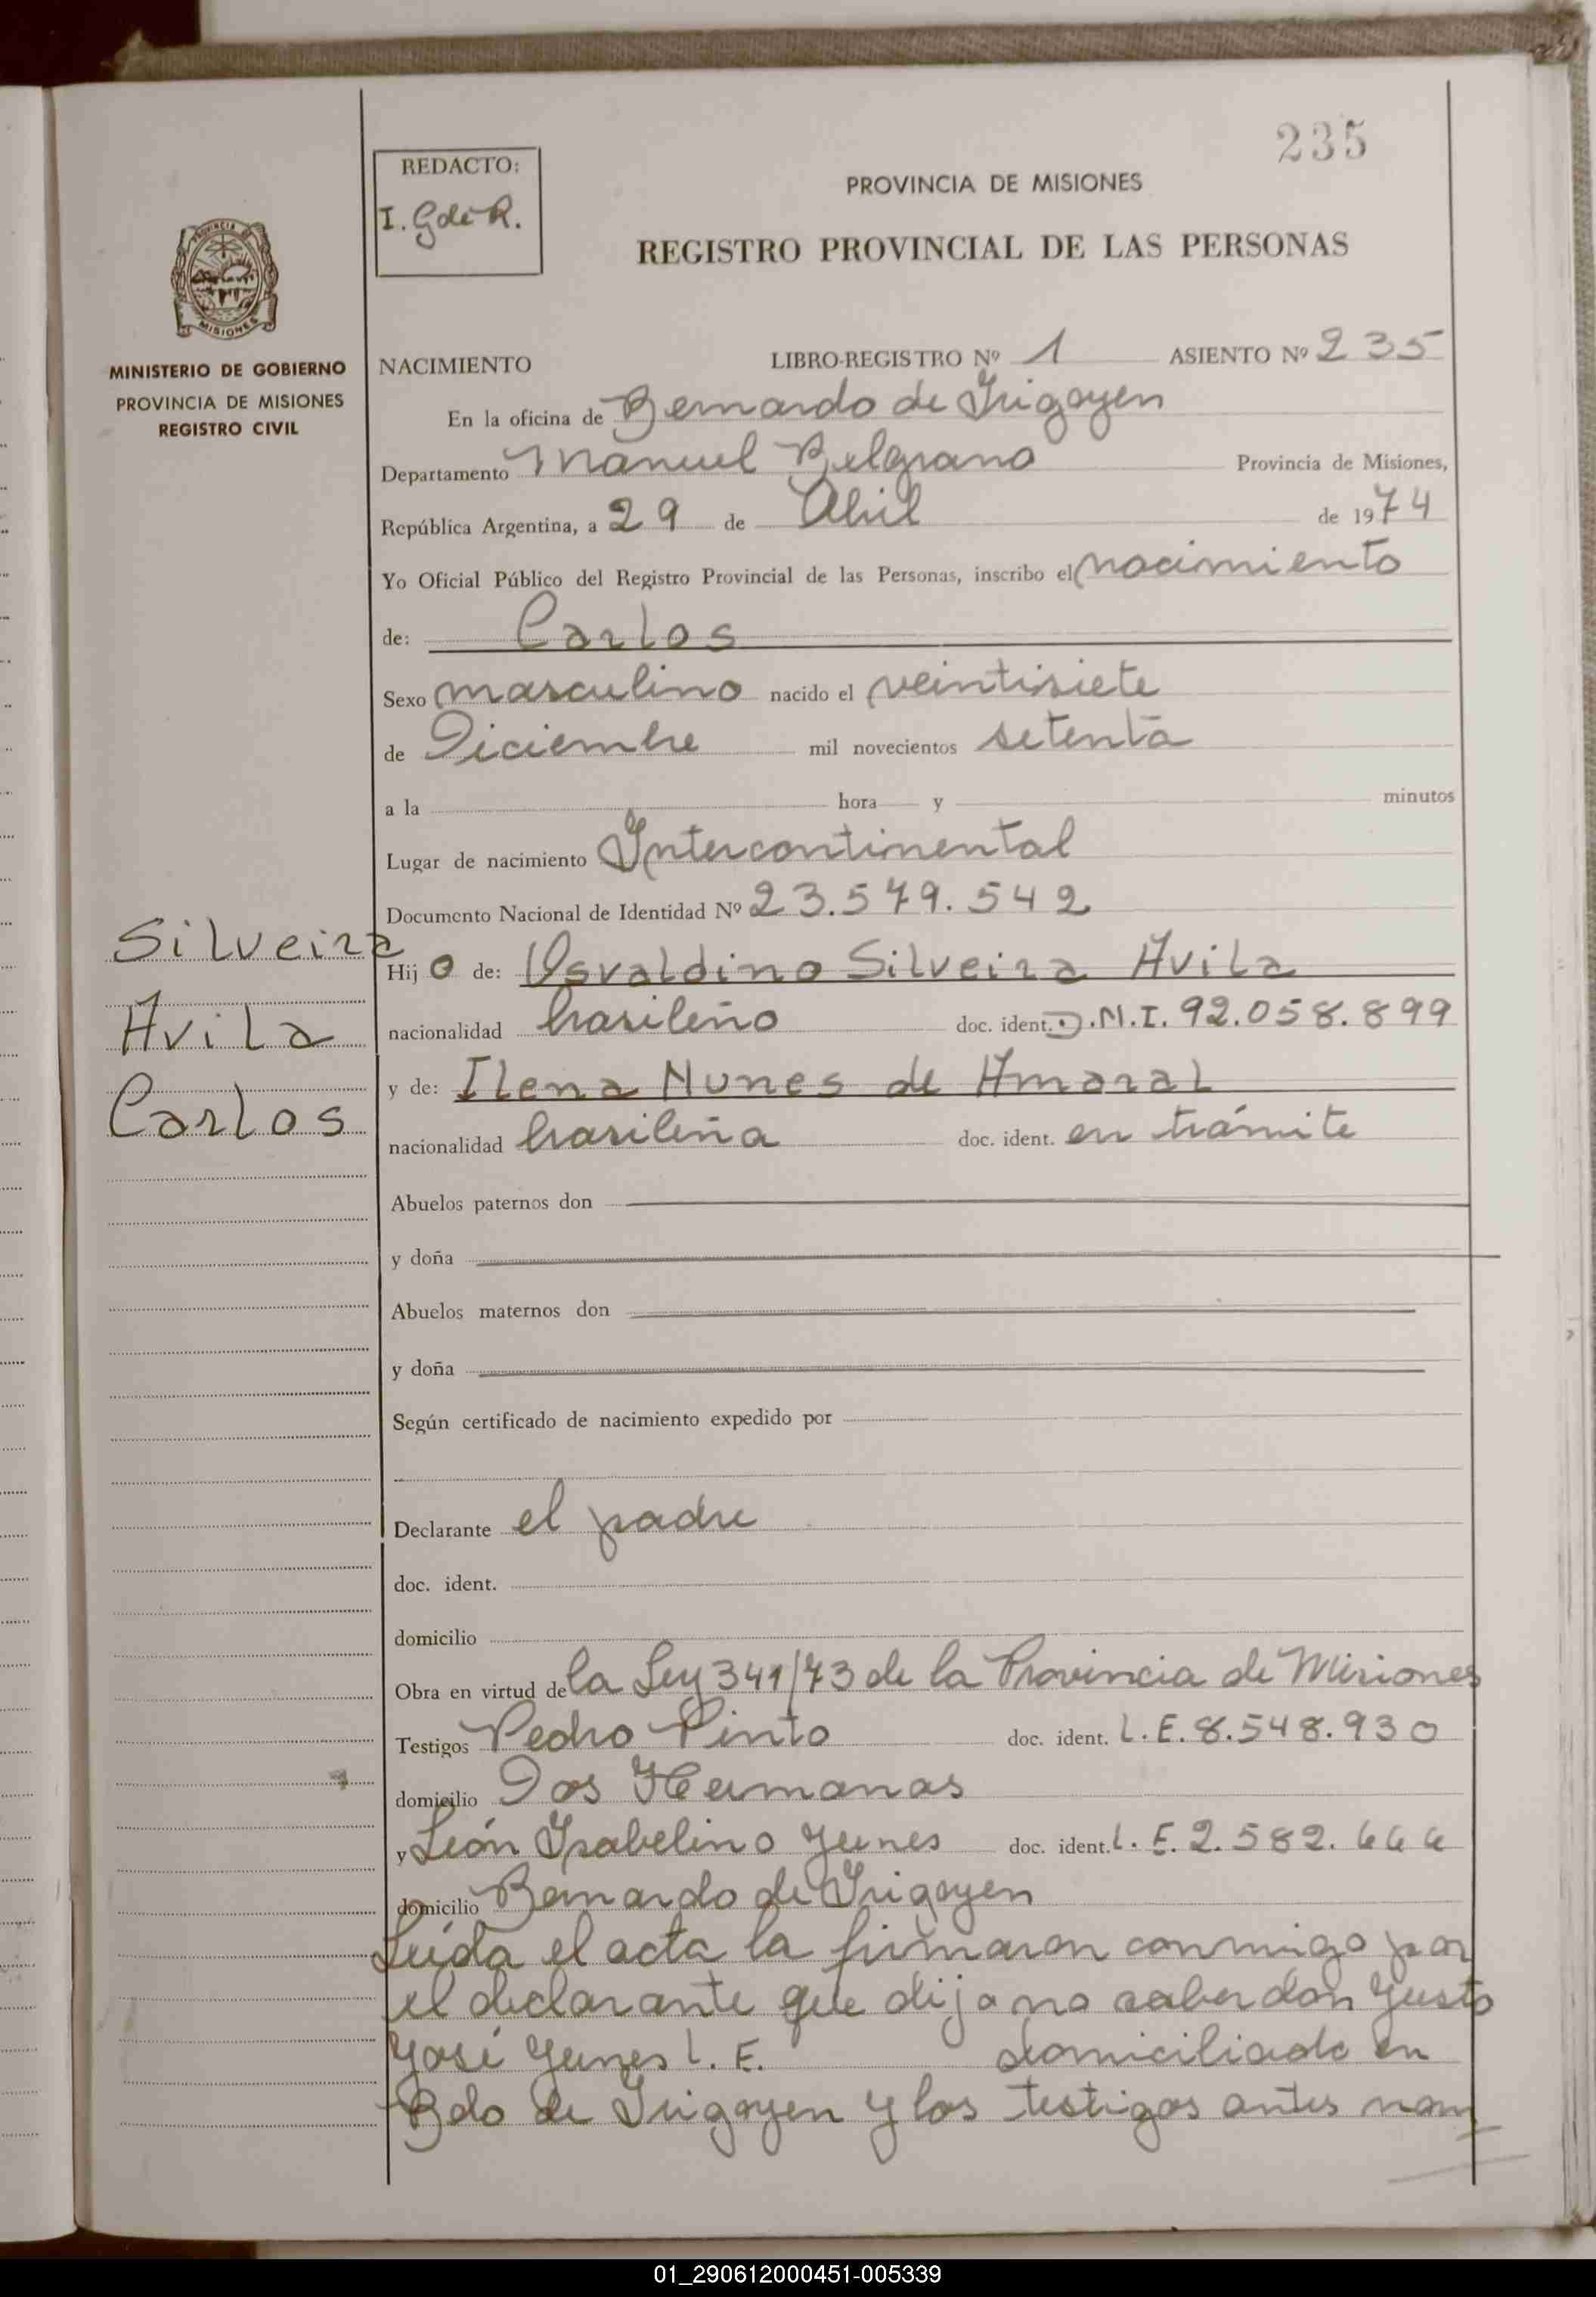 235
REDACTO:
I. G de R.
PROVINCIA DE MISIONES
REGISTRO PROVINCIAL DE LAS PERSONAS
PROVINCIA DE
MISIONES
MINISTERIO DE GOBIERNO
PROVINCIA DE MISIONES
REGISTRO CIVIL
NACIMIENTO LIBRO-REGISTRO Nº 1 ASIENTO Nº 235
En la oficina de Bernardo de Irigoyen
Departamento Manuel Belgrano Provincia de Misiones,
República Argentina, a 29 de Abril de 1974
Yo Oficial Público del Registro Provincial de las Personas, inscribo el nacimiento
de: Carlos
Sexo masculino nacido el veintisiete
de Diciembre mil novecientos setenta
a la hora y minutos
Lugar de nacimiento Intercontinental
Documento Nacional de Identidad Nº 23.579.542
Silveira
Avila
Carlos
Hijo de: Osvaldino Silveira Avila
nacionalidad brasileño doc. ident. D.N.I. 92.058.899
y de: Ilena Nunes de Amaral
nacionalidad brasileña doc. ident. en trámite
Abuelos paternos don
y doña
Abuelos maternos don
y doña
Según certificado de nacimiento expedido por
Declarante el padre
doc. ident.
domicilio
Obra en virtud de la Ley 341/73 de la Provincia de Misiones
Testigos Pedro Pinto doc. ident. L.E. 8.548.930
domicilio Dos Hermanas
y León Isabelino Yunes doc. ident. L.E. 2.582.666
domicilio Bernardo de Irigoyen
Leída el acta la firmaron conmigo por
el declarante que dijo no saber don Justo
José Yunes L.E. domiciliado en
Bdo de Irigoyen y los testigos antes nom
01_290612000451-005339